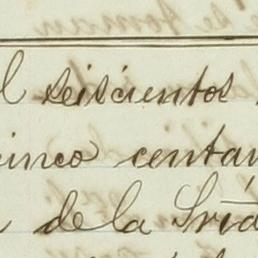 l seiscientos
cinco centav
de la Sría